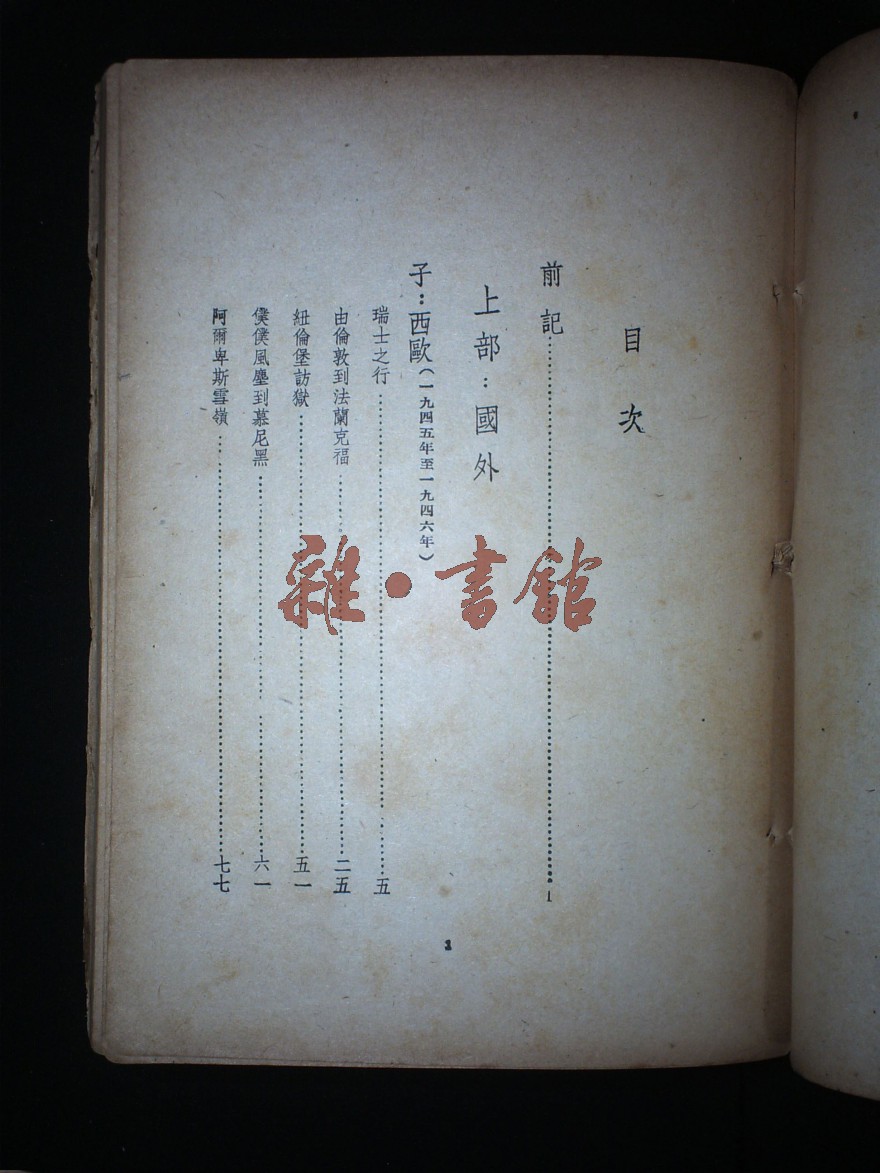 目次
前記……1
上部：國外
子：西歐（一九四五年至一九四六年）
瑞士之行……五
由倫敦到法蘭克福……二五
紐倫堡訪獄……五一
僕僕風塵到慕尼黑……六一
阿爾卑斯雪嶺……七七
1
雜·書館